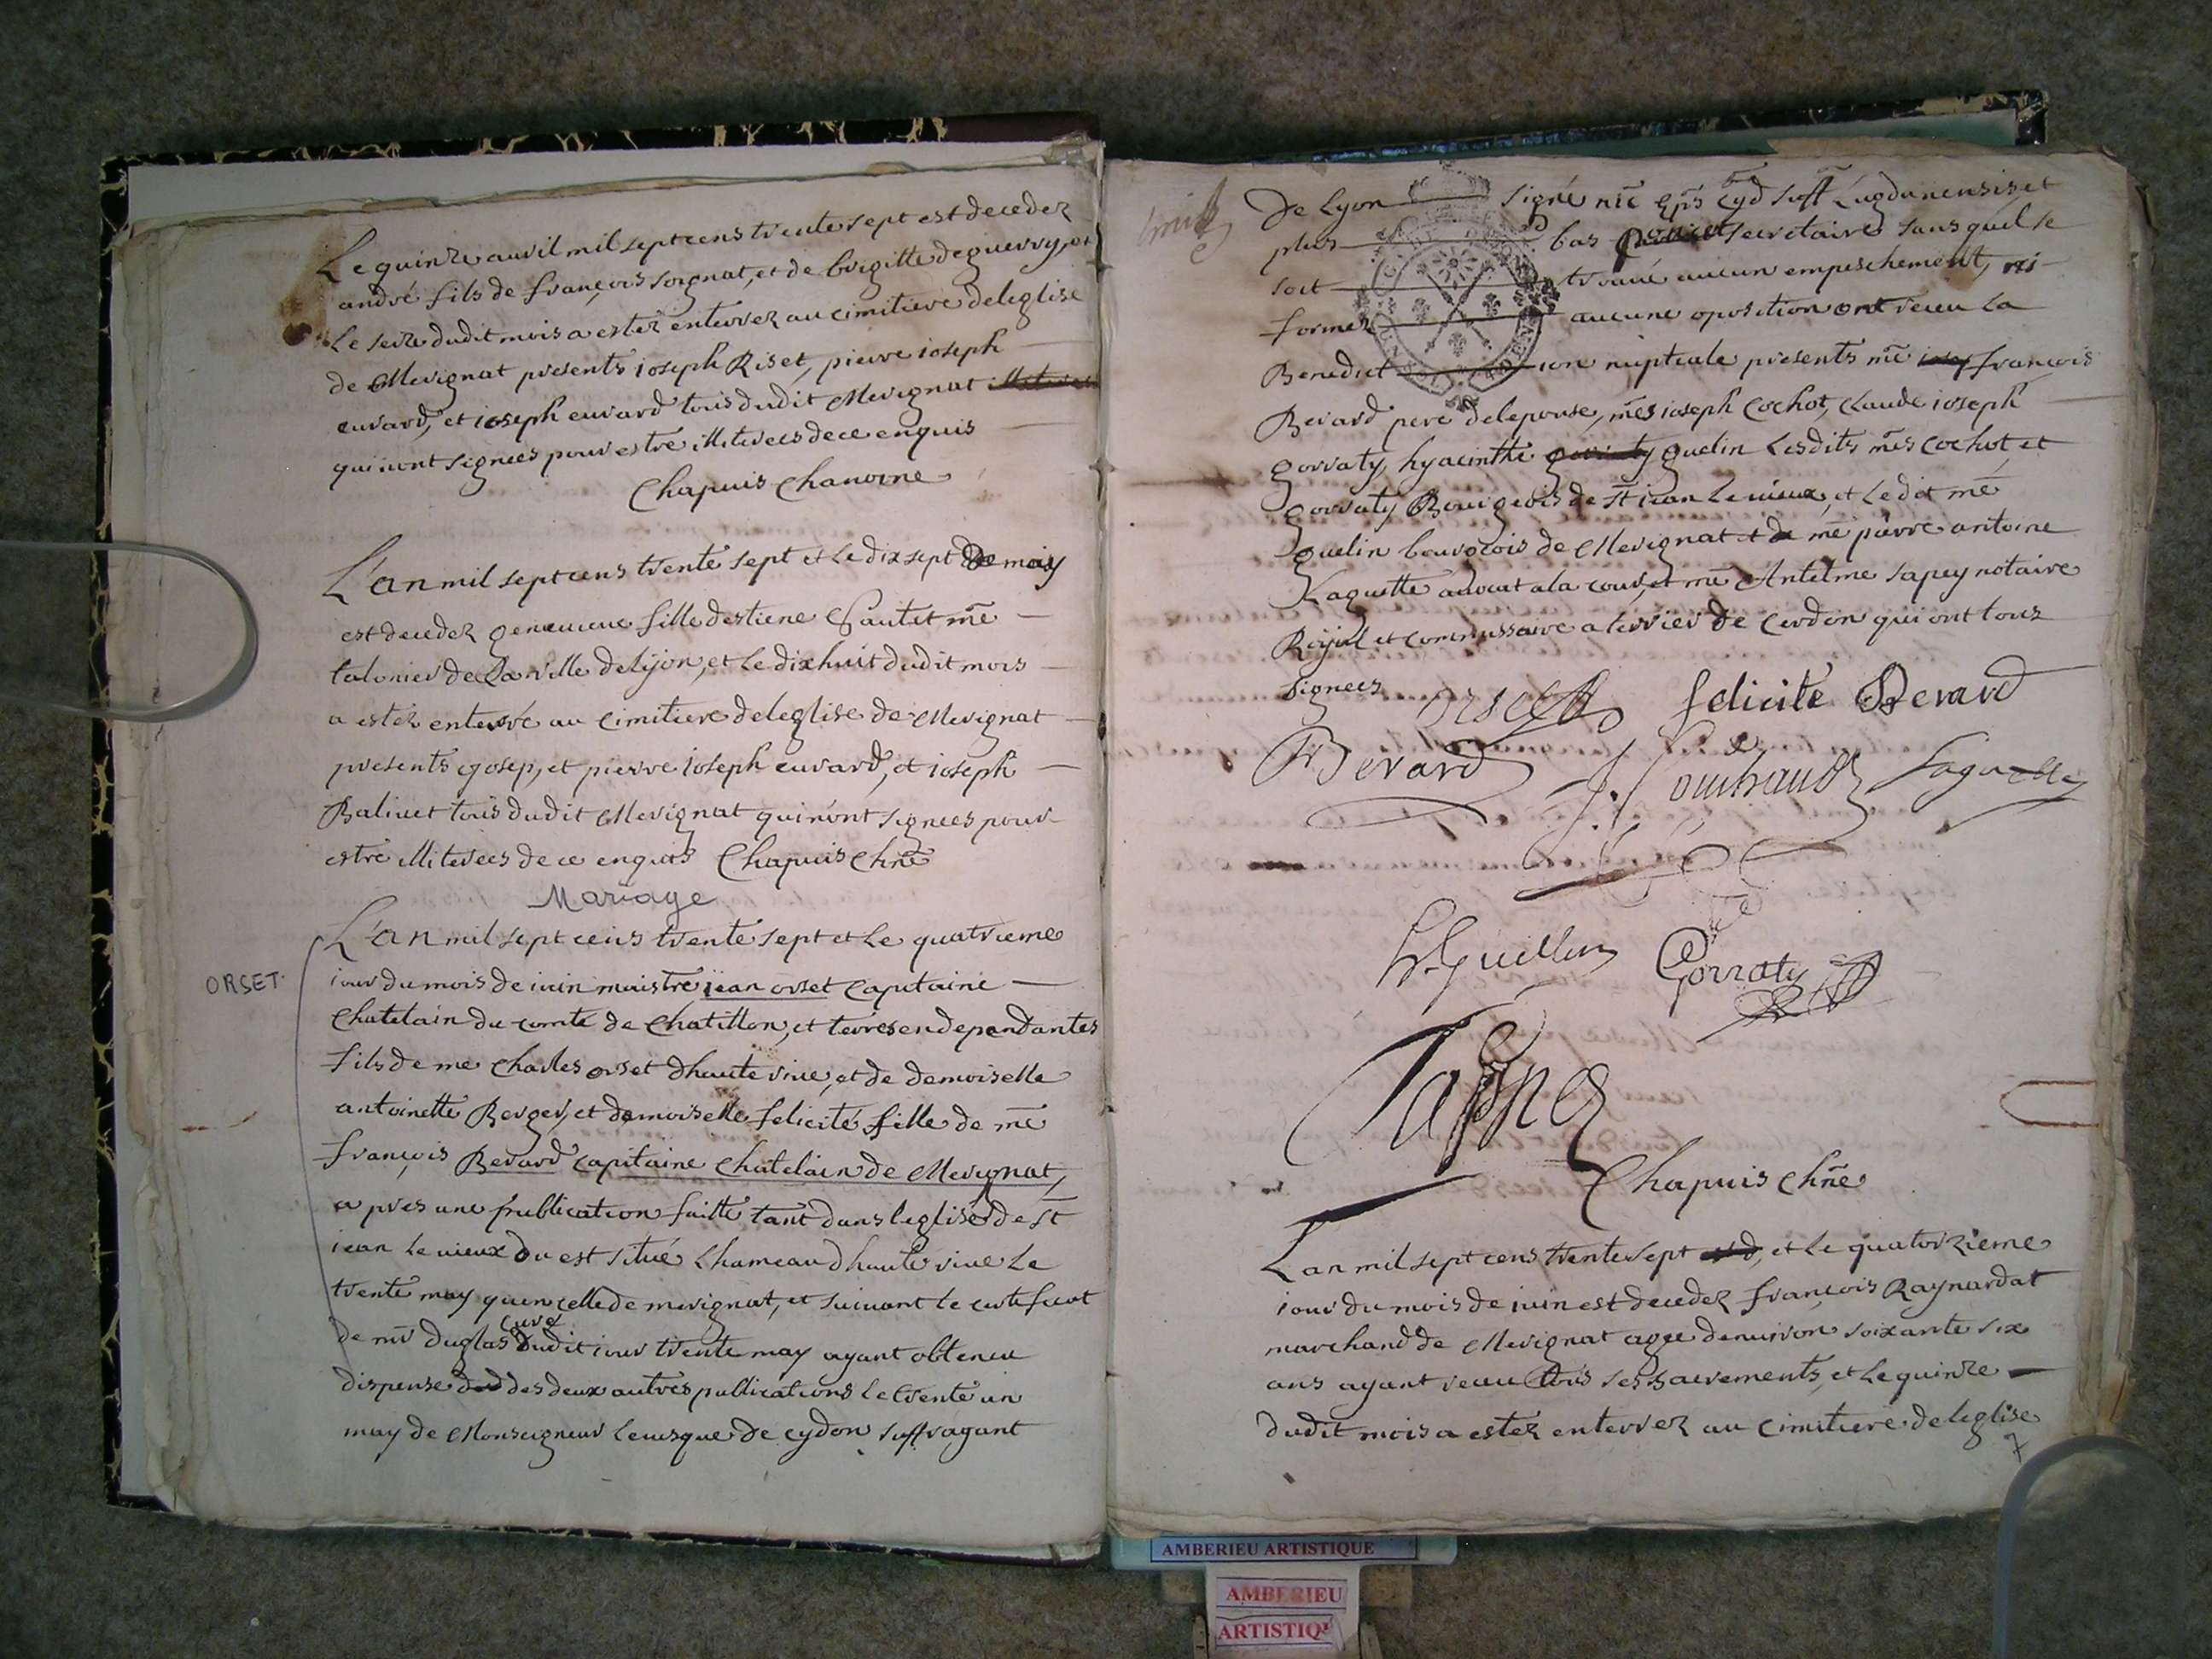 Le quinze auvil mil sept cens trente sept est decedez
andré fils de françois sorgnat, et de brigitte deguerry, et
Le seize dudit mois a estez enterrez au cimitiere deleglise
de Merignat presents ioseph Riset, pierre ioseph
euvard, et ioseph euvard tous dudit Merignat
qui nont signees pour estre illiterees de ce enquis
Chapuis Chanoine
L'an mil sept cens trente sept et le dix sept De may
est decedez genevieve fille destiene Pautet me
talonier de La ville de Lyon, et le dix huit dudit mois
a estez enterré au cimitiere deleglise de Merignat
presents josep, et pierre ioseph euvard, et ioseph
Balivet tous dudit Merignat qui nont signees pour
estre illiterees de ce enquis Chapuis Chne
Mariage
L'an mil sept cens trente sept et Le quatrieme
ORSET
iour du mois de iuin maistre jean orset Capitaine
Chatelain du comté de Chatillon, et terres en dependantes
fils de me Charles orset dhauterive, et de demoiselle
antoinette Berger, et demoiselle felicité fille de me
françois Berard Capitaine Chatelain de Merignat,
a pres une publication faitte tant dans leglise de st
iean le vieux ou est situé Lhameau dhaute rive Le
trente may quen celle de merignat, et suivant le certificat
de mr duglas curé dudit iour trente may ayant obtenu
dispense des deux autres publications le trente un
may de Monseigneur levesque de cydon suffragant
De Lyon signé nic eps cyd suff Lugdunensis, et
plus bas secretaire sans quil se
soit trouvé aucun empeschement, ni
formez aucune oposition ont receu La
Benediction nuptiale presents me françois
Berard pere delepouse, mes ioseph Cochot, Claude ioseph
gorraty, hyacinthe guelin Lesdits mes Cochot, et
gorraty Bourgeois de st iean le vieux, et Ledit me
guelin bourgois de Merignat me pierre antoine
Laguette advocat a la cour, et me Antelme sapey notaire
Royal et commissaire a terrier de Cerdon qui ont tous
signees orset felicité Berard
Berard Laguette
Guellin Gorraty
Chapuis Chne
Lan mil sept cens trente sept, et le quatorzieme
iour du mois de iuin est decedez françois Raynardat
marchand de Merignat agee denviron soixante six
ans ayant receu tous ses sacrements, et Le quinze
dudit mois a estez enterrez au cimitiere deleglise
7
AMBERIEU ARTISTIQUE
AMBERIEU
ARTISTIQ